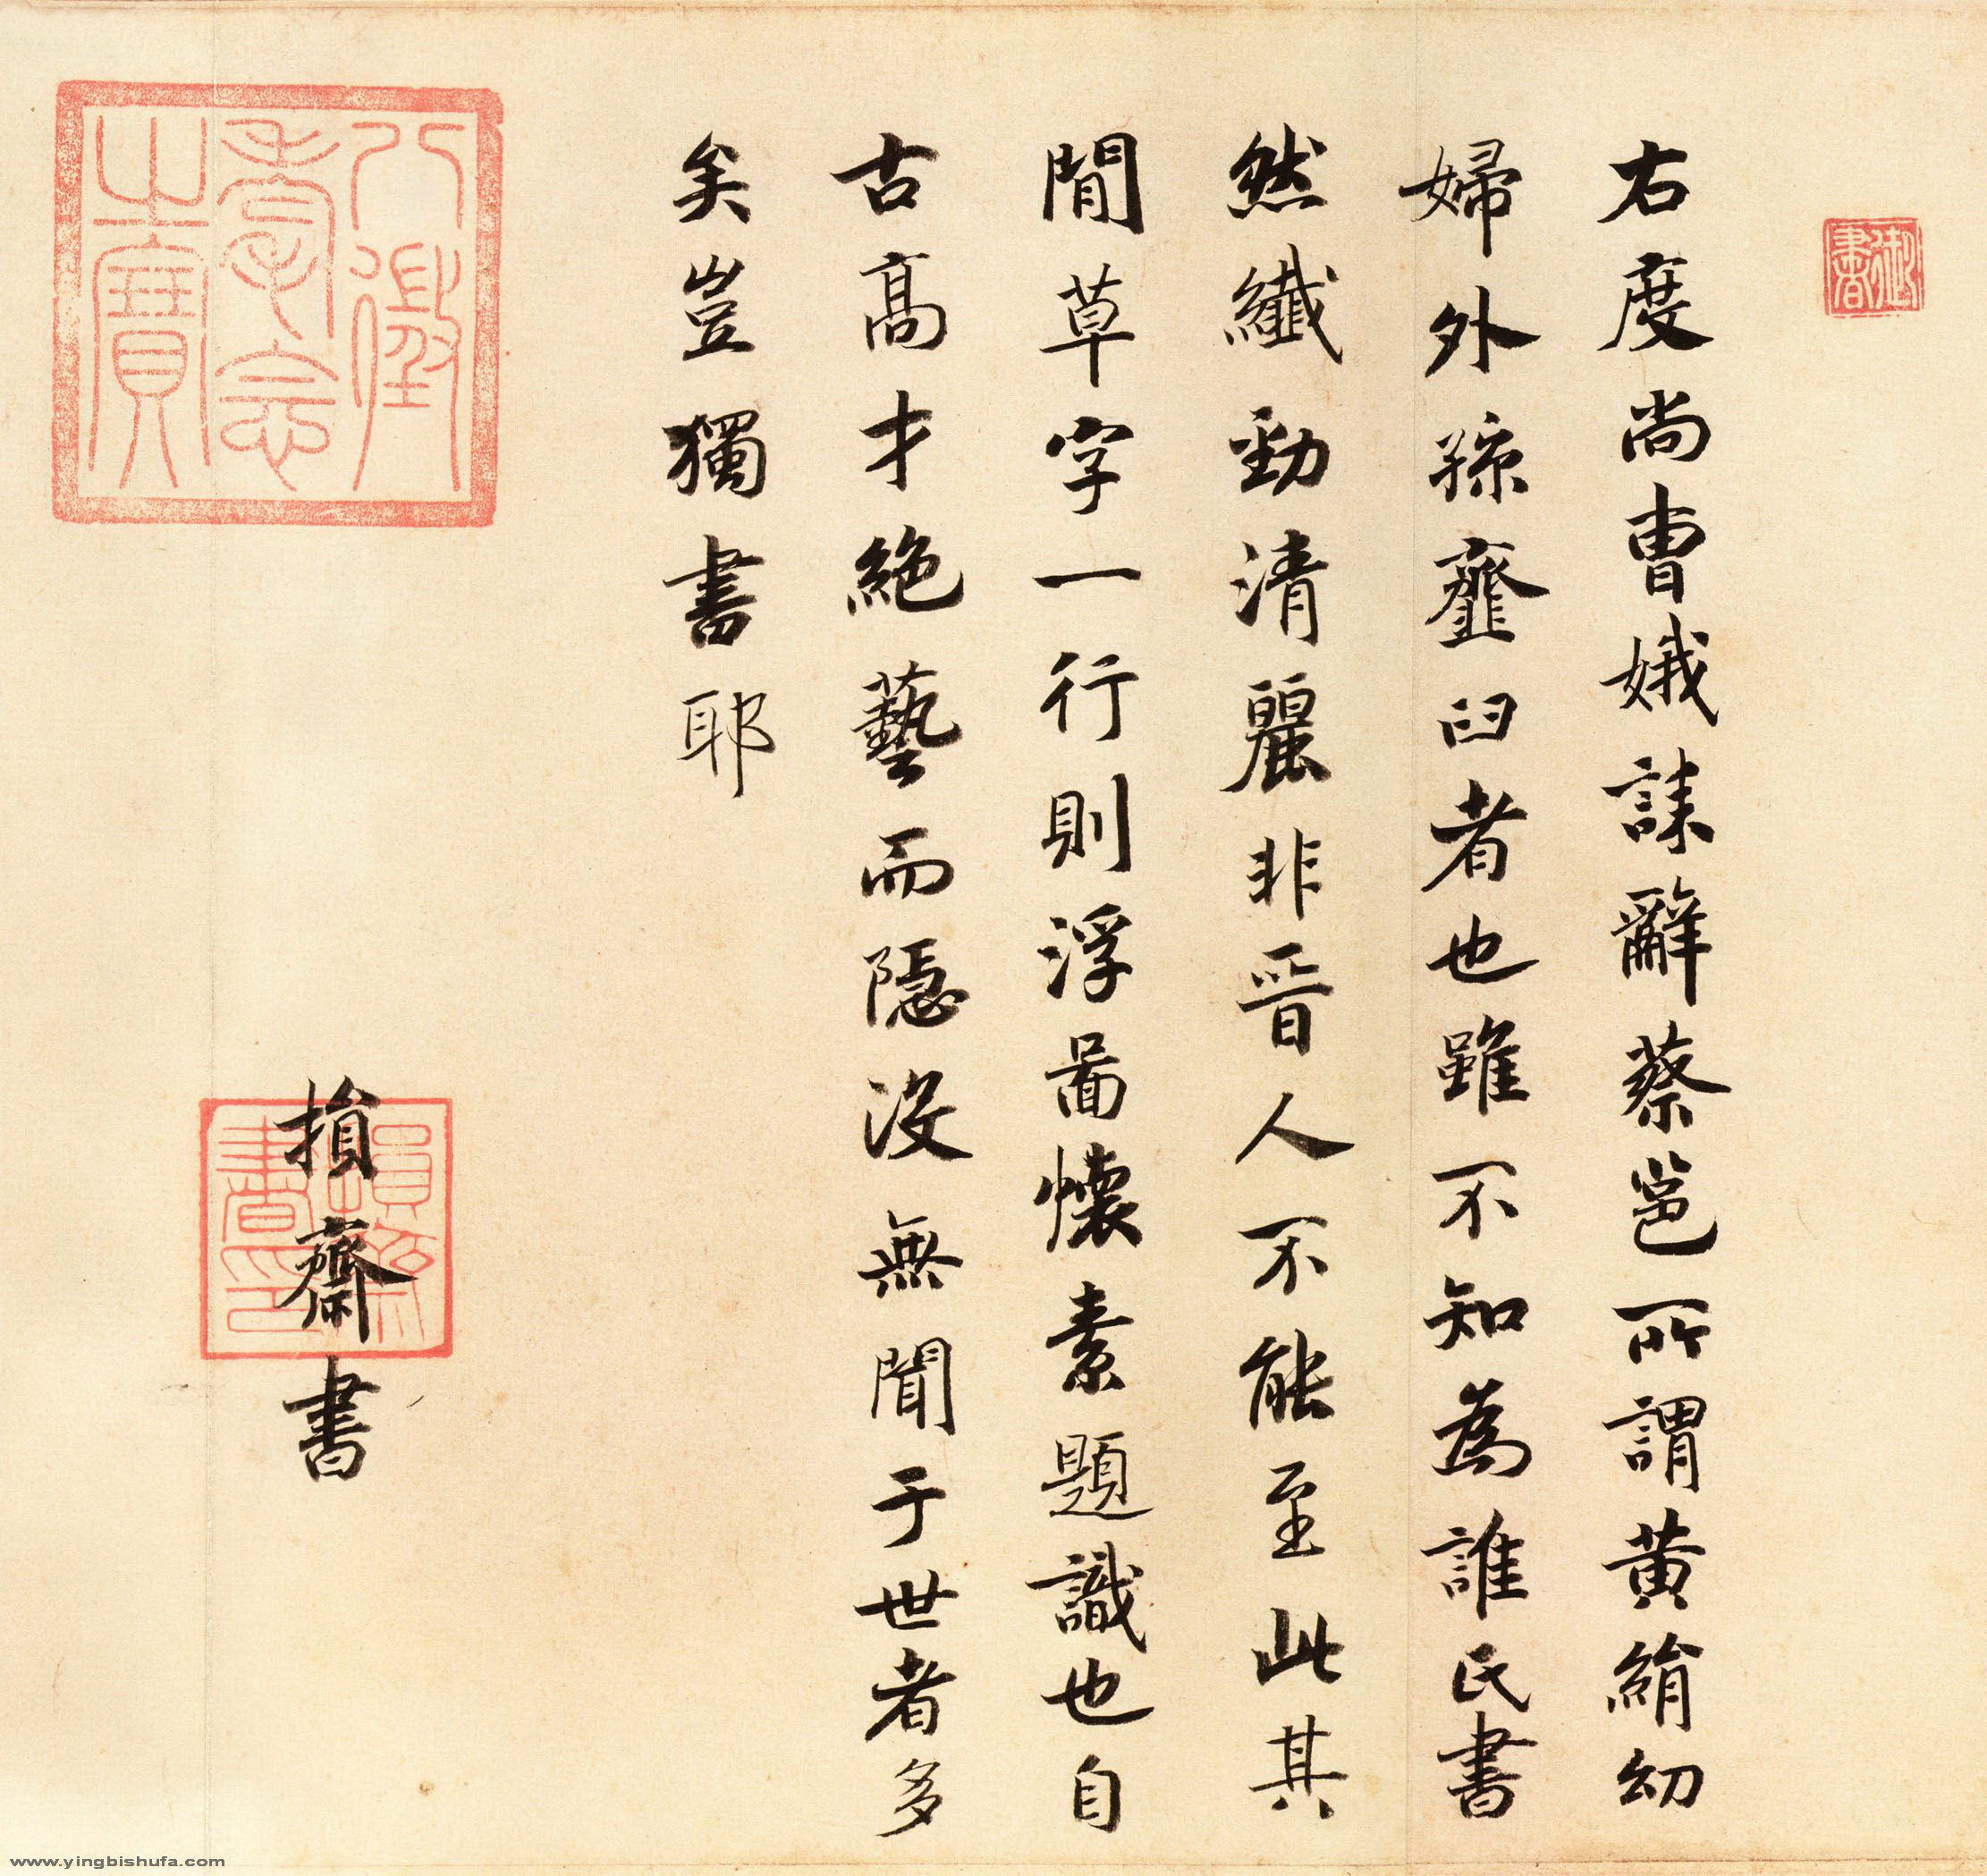 御書
右度尚曹娥誄辭蔡邕所謂黄絹幼
婦外孫虀臼者也雖不知為誰氏書
然纖勁清麗非晉人不能至此其
間草字一行則浮啚懷素題識也自
古髙才絶藝而隠没無聞于世者多
矣豈獨書耶
損齋書
損齋書印
八徵耄念之寶
www.yingbishufa.com